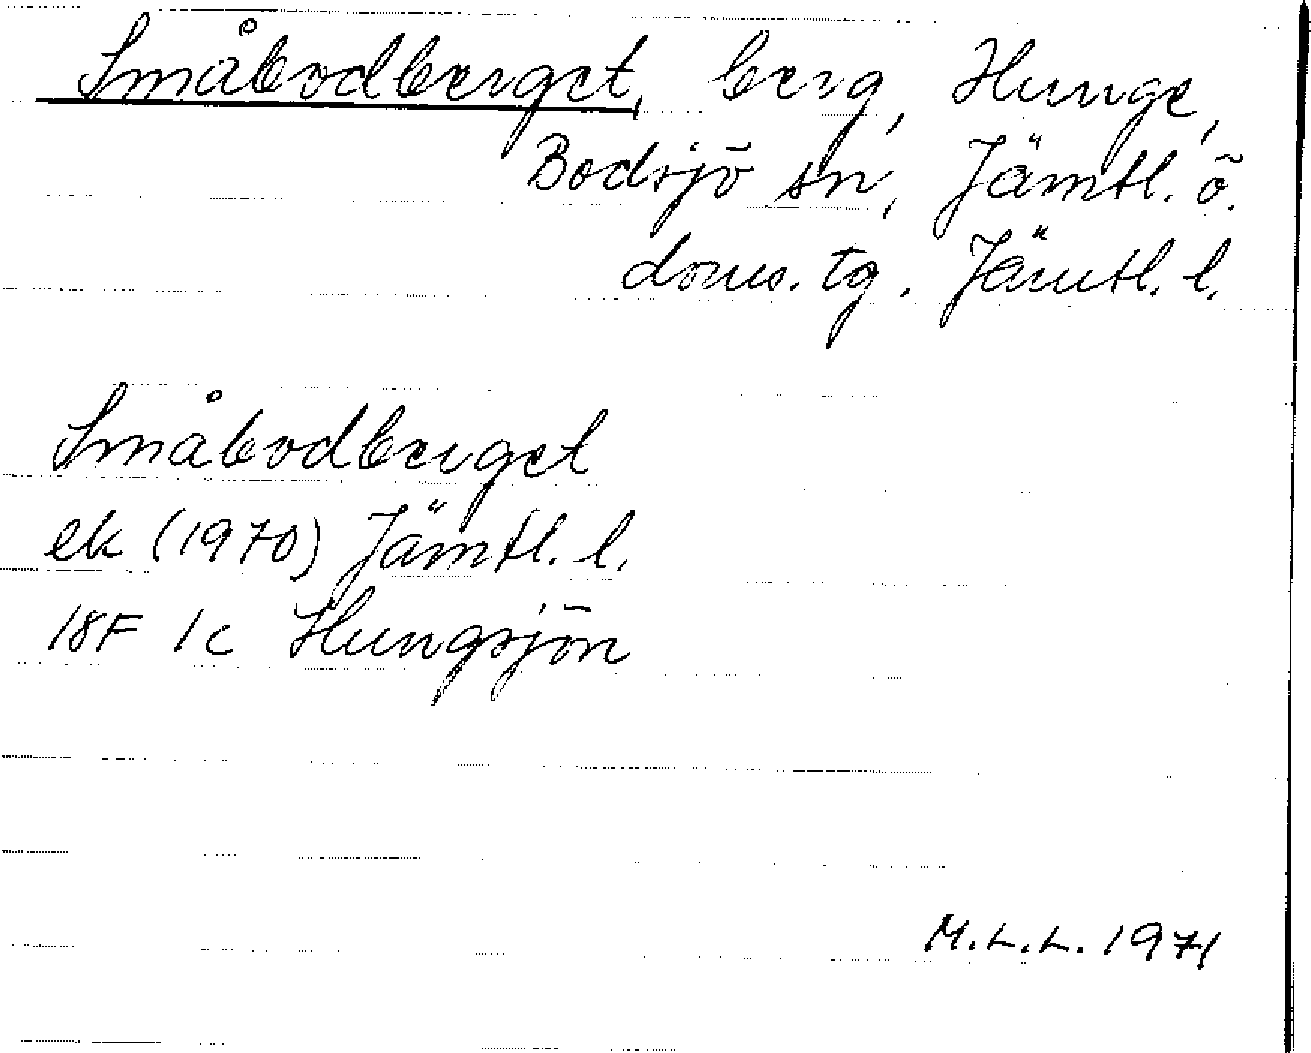 Småbodberget, berg, Hunge,
Bodsjö sn, Jämtl. ö.
doms. tg. Jämtl. l.
Småbodberget
ek (1970) Jämtl. l.
18F 1c Hungsjön
M.L.L. 1971